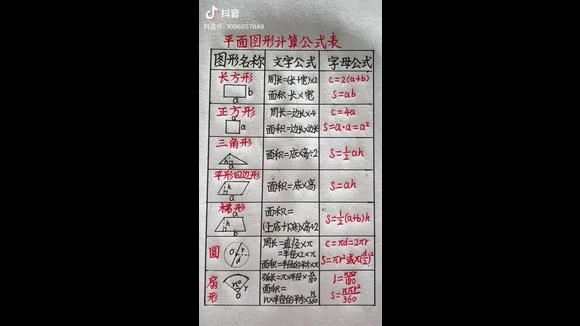 抖音
抖音号: 1086857649
平面图形计算公式表
图形名称 文字公式 字母公式
长方形 周长=(长+宽)×2 c=2(a+b)
b 面积=长×宽 S=ab
a
正方形 周长=边长×4 c=4a
a 面积=边长×边长 S=a·a=a²
a
三角形
h 面积=底×高÷2 S=½ah
a
平行四边形
h 面积=底×高 S=ah
a
梯形 面积=
a
h (上底+下底)×高÷2 S=½(a+b)h
b
圆 周长=直径×π c=πd=2πr
O r =半径×2×π
d 面积=半径的平方×π S=πr²或π(d/2)²
扇形 弧长=π×半径×n/180 l=nπr/180
n° r 面积=
O n×半径的平方×π/360 S=nπr²/360